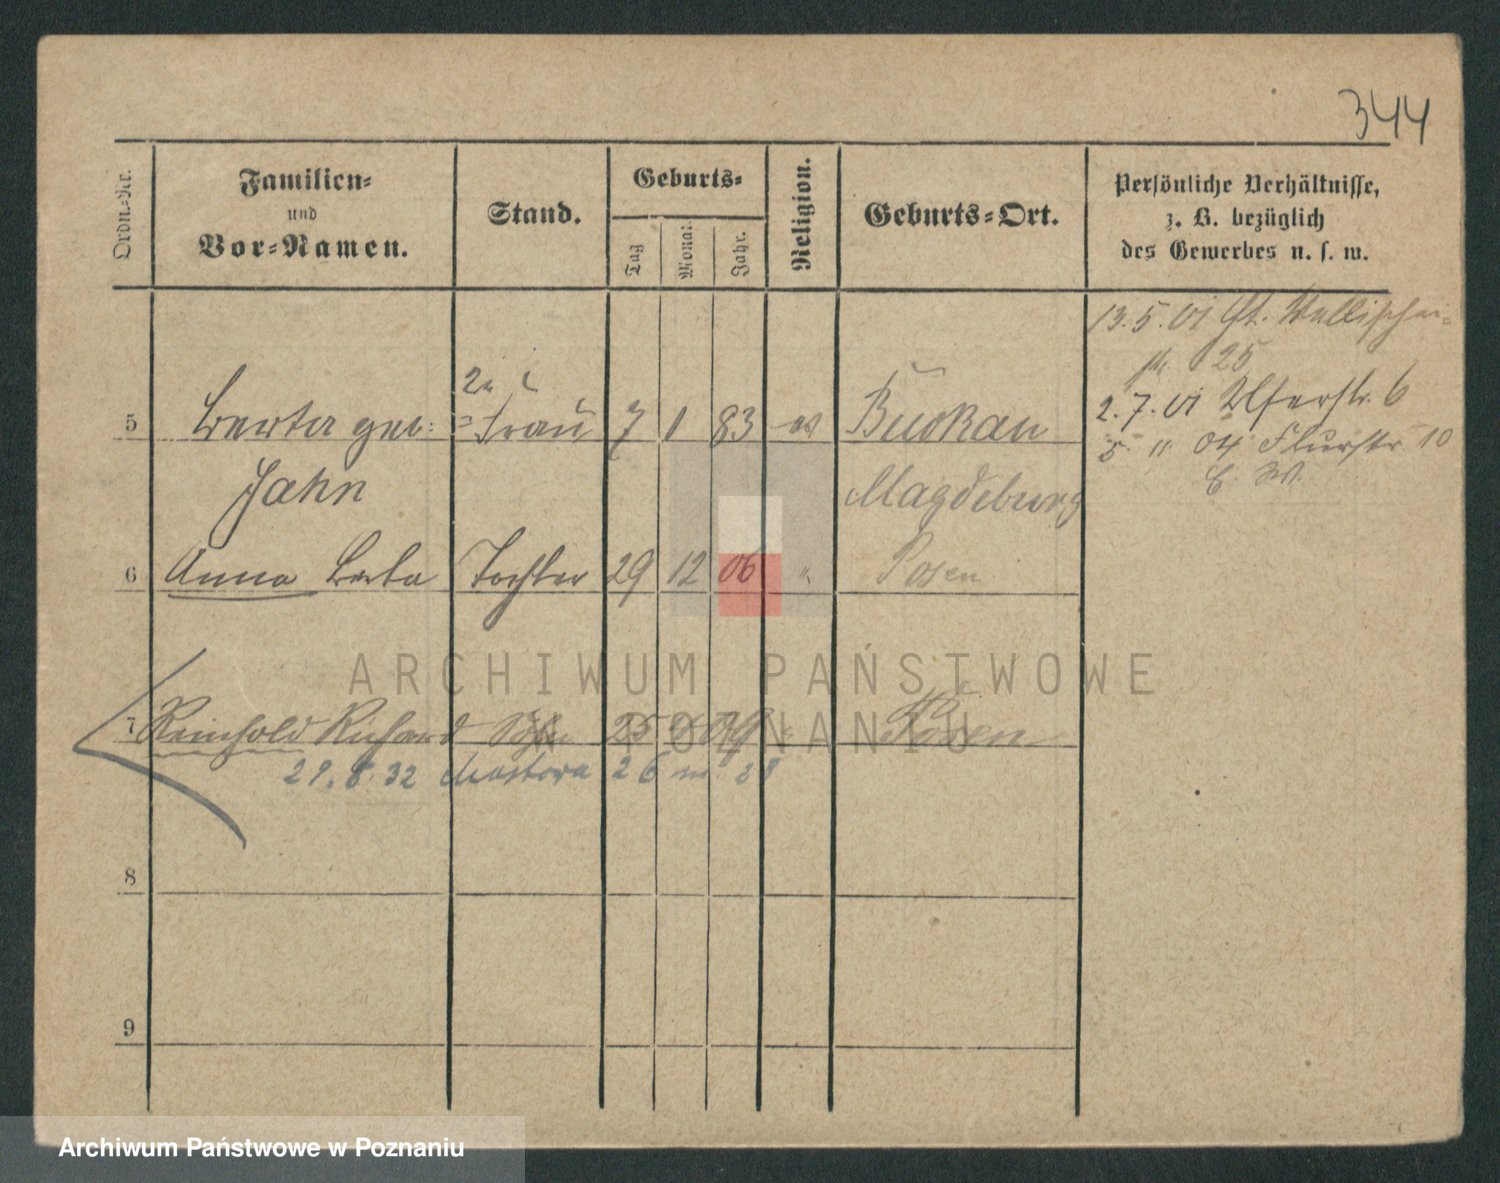 344
Ordn.-Nr.
Familien-
und
Vor-Namen.
Stand.
Geburts-
Tag
Monat
Jahr.
Religion.
Geburts-Ort.
Persönliche Verhältnisse,
z. B. bezüglich
des Gewerbes u. s. w.
13. 5. 01 Gr.
25
2a
5 Berta geb: Frau 7 1 83 ev Buckau
2. 7. 01 6
5. 11. 04 Flurstr. 10
Jahn Magdeburg
6 Anna Berta Tochter 29 12 06 " Posen
7 Reinhold Richard Sohn 25 09 Posen
29. 8. 32 26 28
8
9
ARCHIWUM PAŃSTWOWE
W POZNANIU
Archiwum Państwowe w Poznaniu